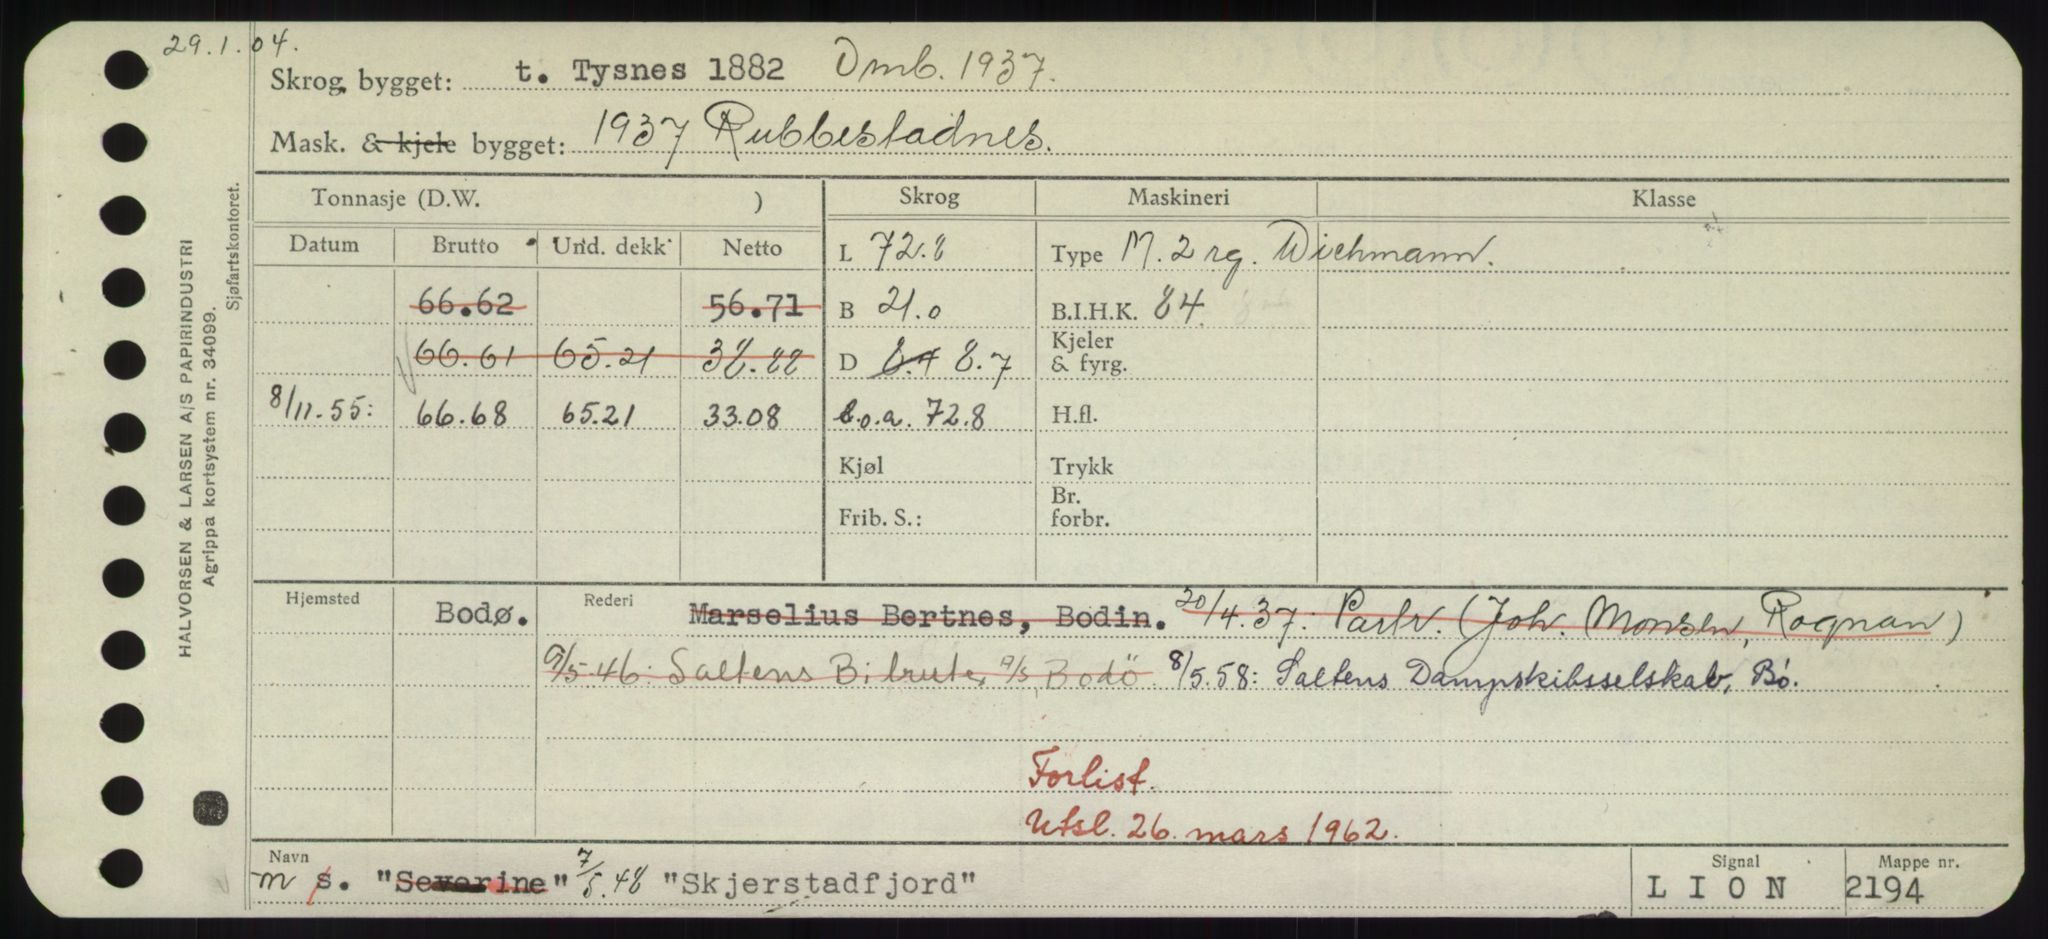 29.1.04.
Skrog bygget: t. Tysnes 1882 Omb. 1937.
Mask. & kjele bygget: 1937 Rubbestadnes.
Tonnasje (D.W. ) Skrog Maskineri Klasse
Datum Brutto Und. dekk Netto L 72.8 Type M. 2 rg. Wichmann.
66.62 56.71 B 21.0 B.I.H.K. 84
66.61 65.21 38.88 D 8.4 8.7 Kjeler & fyrg.
8/11.55: 66.68 65.21 33.08 l.o.a. 72.8 H.fl.
Kjøl Trykk
Frib. S.: Br. forbr.
Hjemsted Bodø. Rederi Marselius Bertnes, Bodin. 20/4.37: Partr. (Joh. Monsen, Rognan)
9/5.46: Saltens Bilruter A/S, Bodö. 8/5.58: Saltens Dampskibsselskab, Bö.
Forlist.
Utsl. 26. mars 1962.
Navn Signal Mappe nr.
m s. "Severine" 7/5.48 "Skjerstadfjord" LION 2194
HALVORSEN & LARSEN A/S PAPIRINDUSTRI
Agrippa kortsystem nr. 34099.
Sjøfartskontoret.